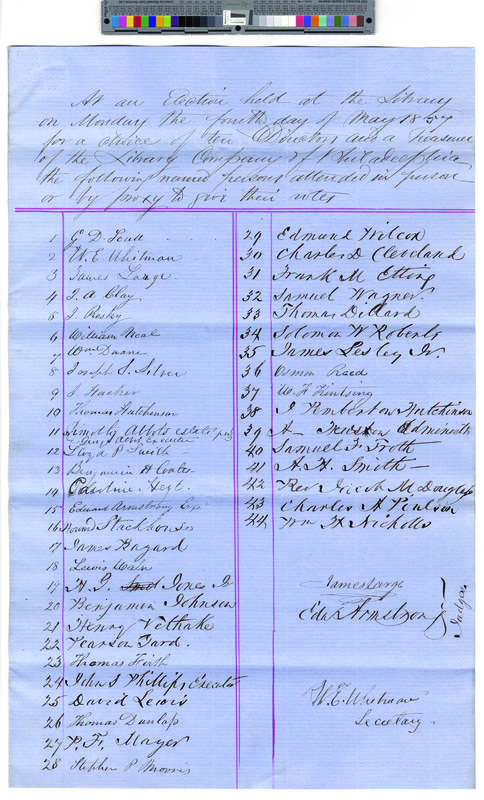 At an Election held at the Library
on Monday the fourth day of May 1857
for a choice of ten Directors and a Treasurer
of the Library Company of Philadelphia
the following named persons attended in person
or by proxy to give their votes
1 G. D.
2 W. E. Whitman
3 James Large
4 J. A. Clay
5 J.
6 William Neal
7 Wm Duane
8 Joseph S. Silver
9 J Hacker
10 Thomas Hutchinson
11 Timothy Abbots estate per
Executor
12 Lloyd P Smith
13 Benjamin H Coates
14
15 Edward Armstrong Ex
16 Stackhouse
17 James Bayard
18 Lewis Waln
19 A. J. Jones Jr
20 Benjamin Johnson
21 Henry Vethake
22 Pearson Yard.
23 Thomas Firth
24 John S Phillips Executor
25 David Lewis
26 Thomas Dunlap
27 P. F. Mayer
28 Stephen P Morris
29 Edmund Wilcox
30 Charles D Cleveland
31 Frank M Etting
32 Samuel Wagner.
33 Thomas Dillard
34 Solomon W Roberts
35 James Lesley Jr.
36 Osmon Reed
37 W. H.
38 I Pemberton Hutchinson
39 A
40 Samuel F. Troth
41 A. H. Smith —
42 Rev Jacob M Douglass
43 Charles A Poulson
44 Wm H Nicholls
James Large
Edw Armstrong
Judges
W. E. Whitman
Secretary.